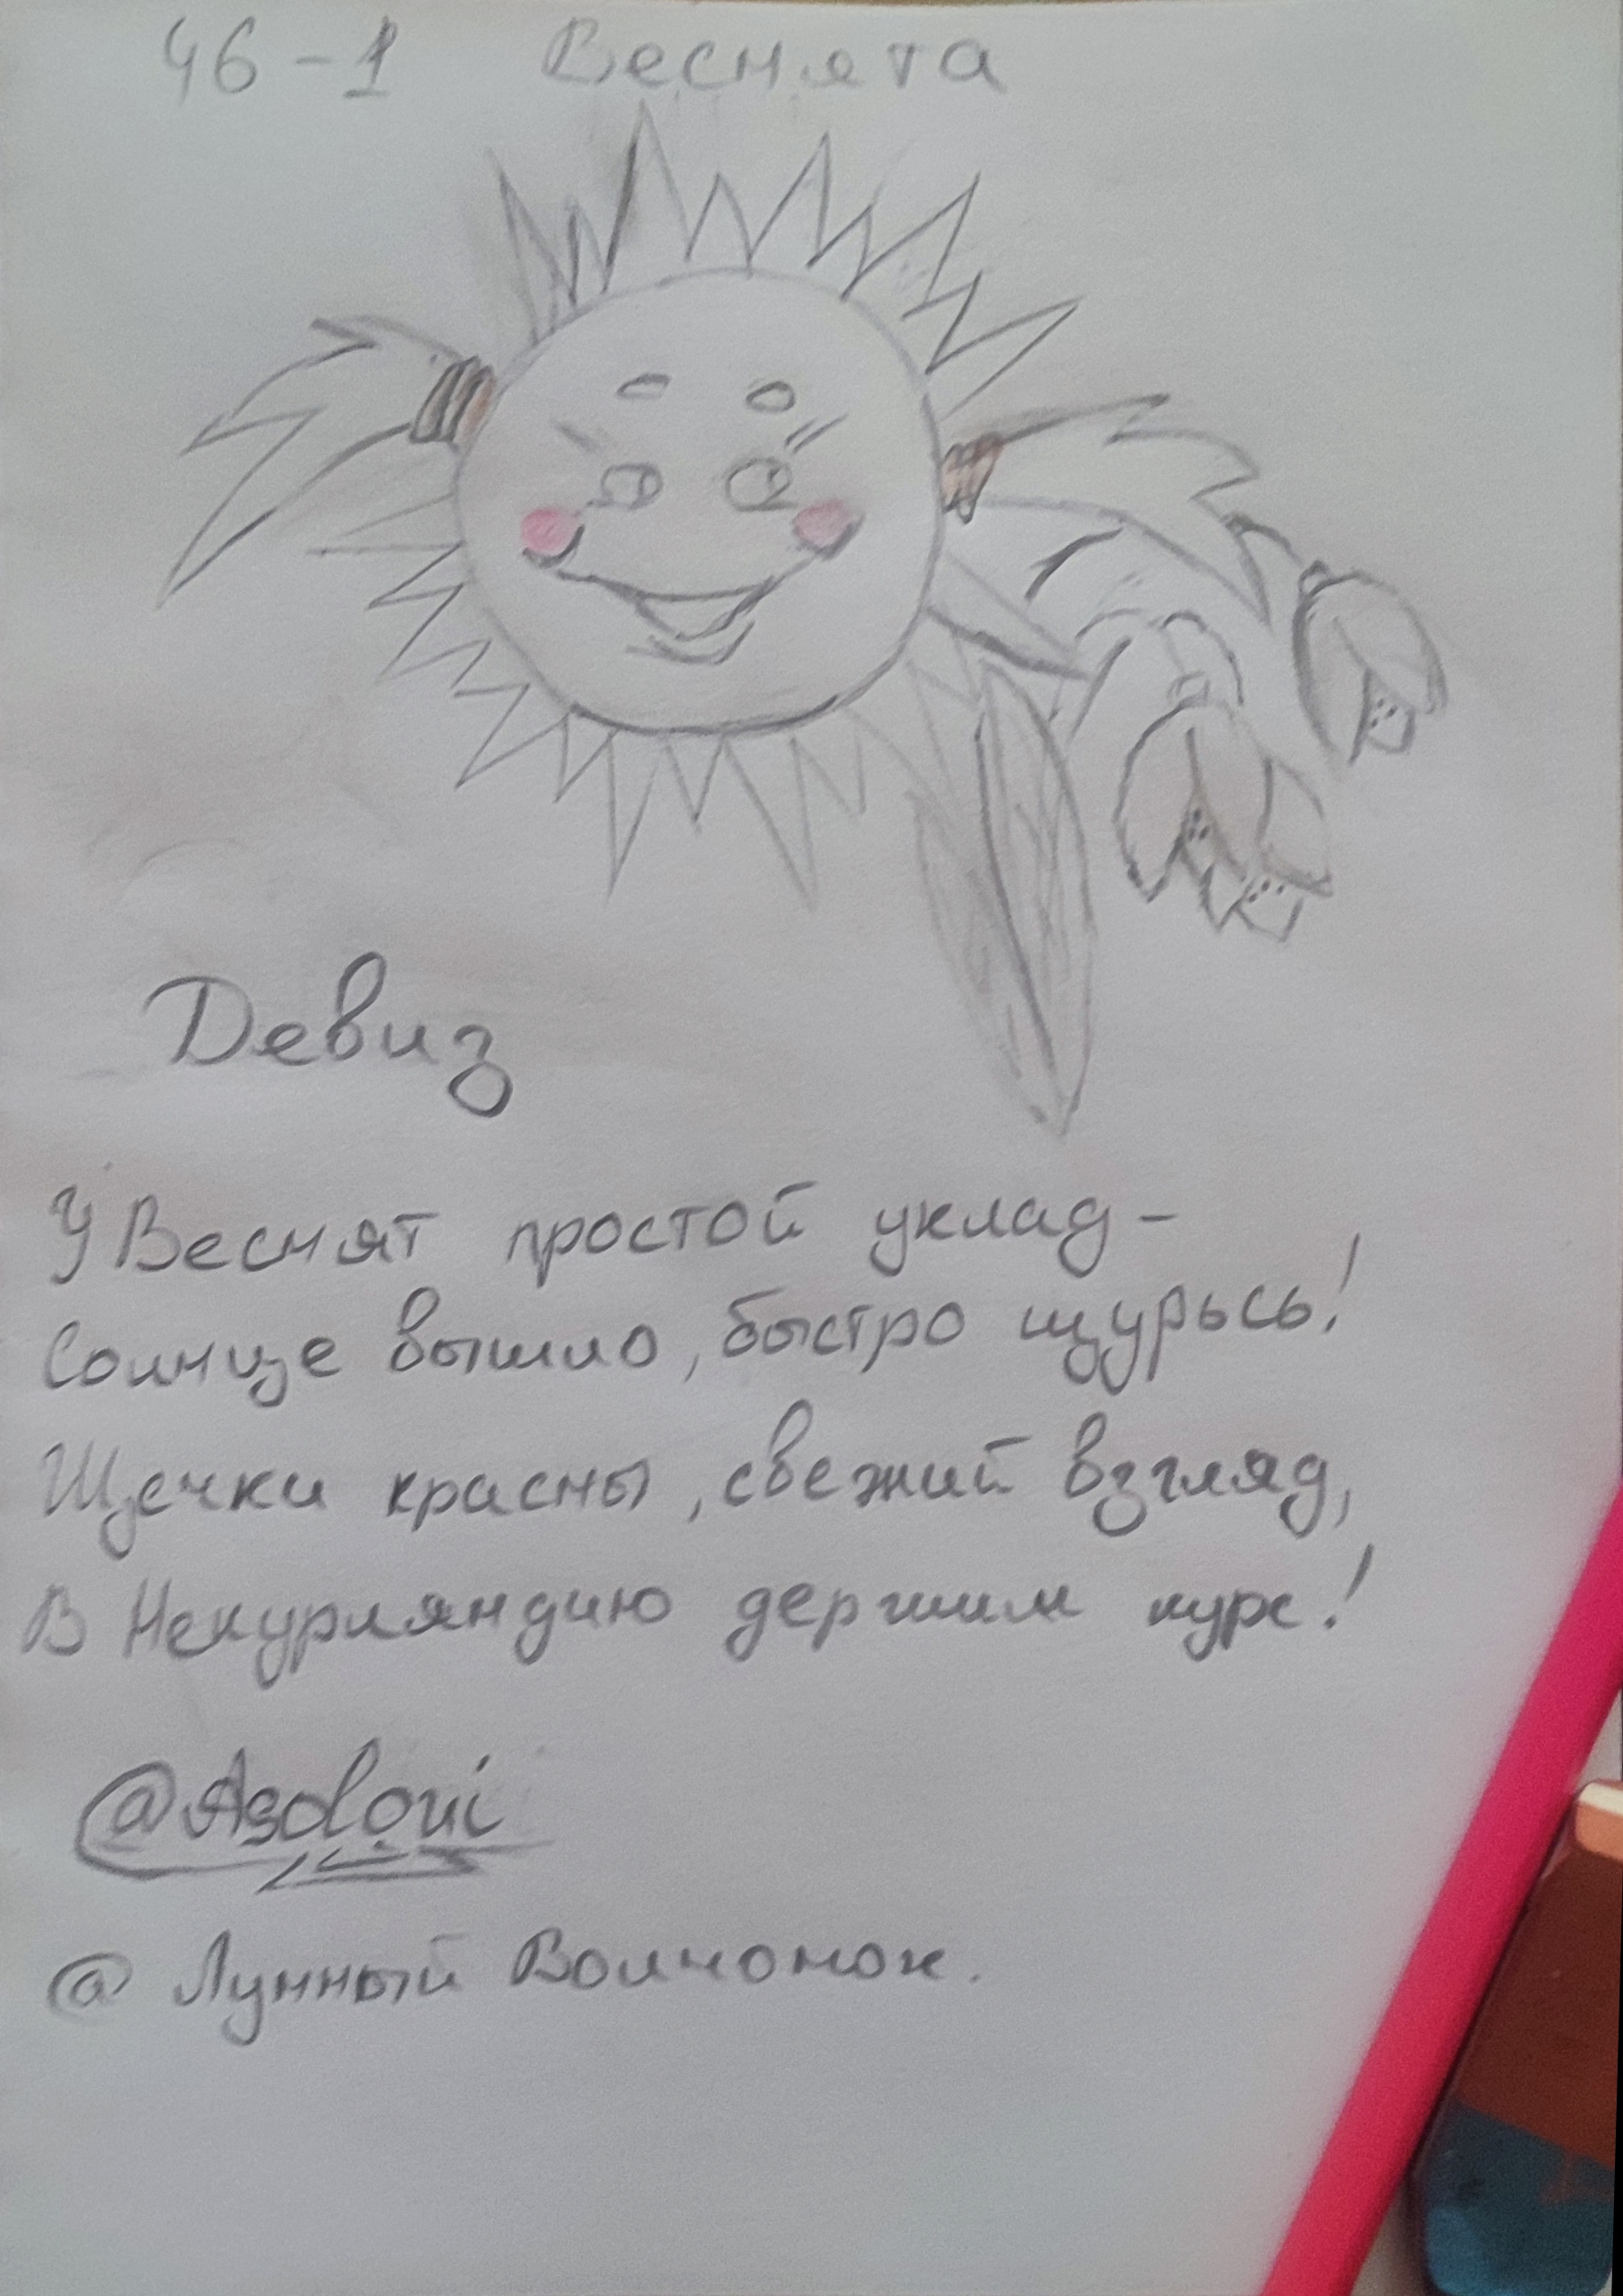 46-1 Веснята
Девиз
У Веснят простой уклад-
Солнце вышло, быстро щурьсь!
Щечки красны, свежий взгляд,
В Некурляндию держим курс!
@Asoloni
@ Лунный Волчонок.